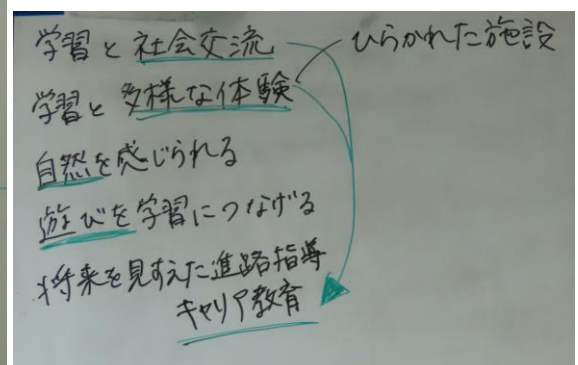 学習と社会交流
ひらかれた施設
学習と多様な体験
自然を感じられる
遊びを学習につなげる
将来を見すえた進路指導
キャリア教育